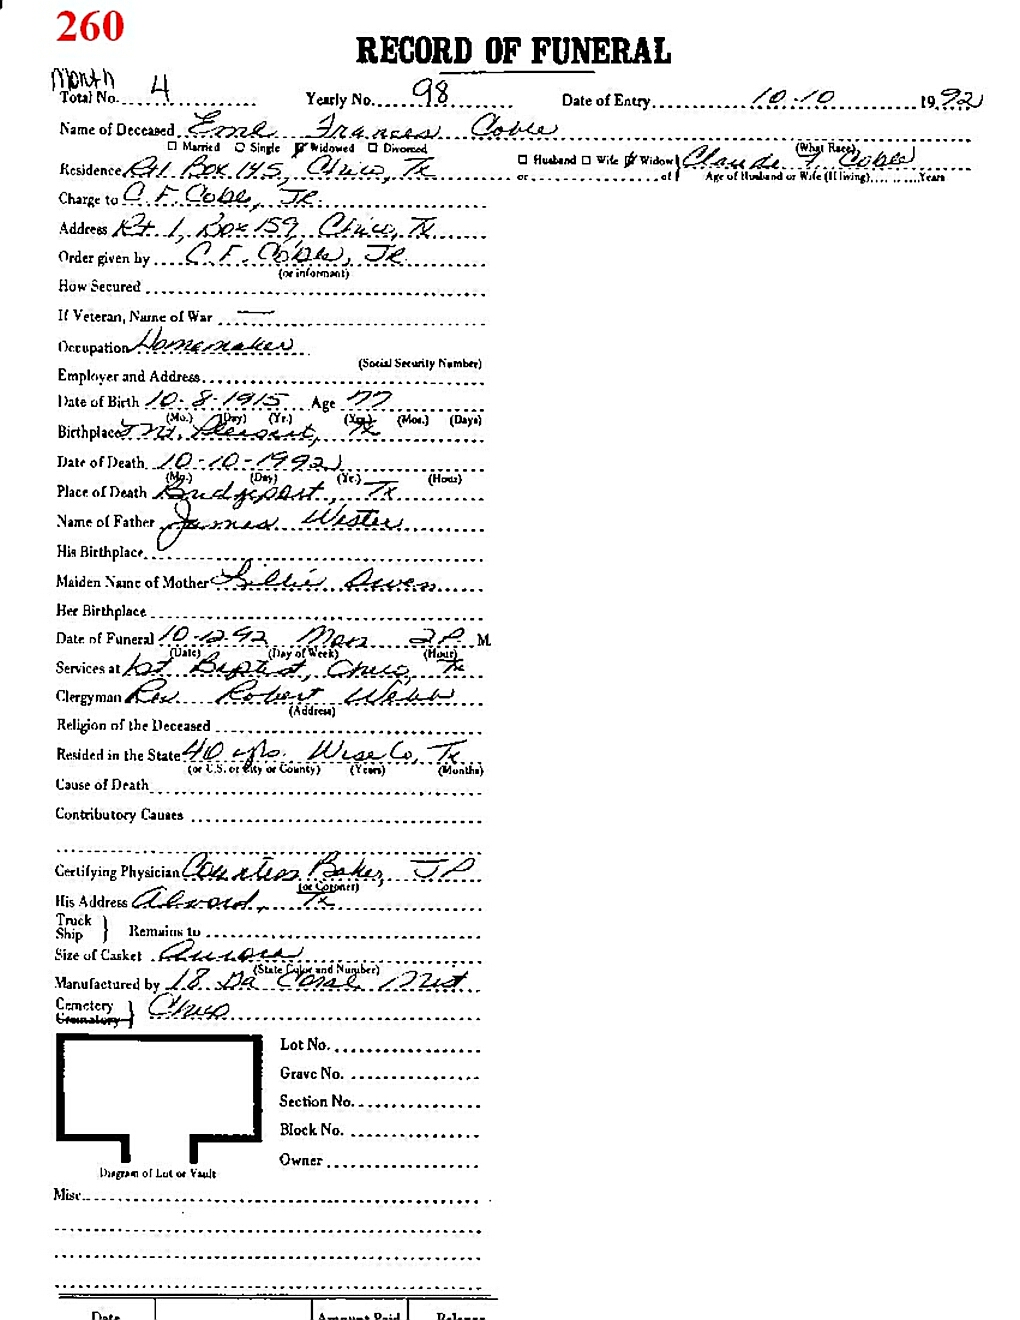 260
RECORD OF FUNERAL
Month
Total No. 4 Yearly No. 98 Date of Entry 10-10 1992
Name of Deceased Frances Coble (What Race)
Married Single Widowed Divorced
Residence Rt 1 Box 145, Chico, Tx Husband Wife Widow of Claude F. Coble
or of Age of Husband or Wife (If living) Years
Charge to C. F. Coble, Jr.
Address Rt 1, Box 159, Chico, Tx
Order given by C. F. Coble, Jr.
(or informant)
How Secured
If Veteran, Name of War —
Occupation Homemaker
(Social Security Number)
Employer and Address
Date of Birth 10-8-1915 Age 77
(Mo.) (Day) (Yr.) (Yrs.) (Mos.) (Days)
Birthplace Mt. Pleasant, Tx
Date of Death 10-10-1992
(Mo.) (Day) (Yr.) (Hour)
Place of Death Bridgeport, Tx
Name of Father James Wester
His Birthplace
Maiden Name of Mother Lillie Owen
Her Birthplace
Date of Funeral 10-12-92 Mon 2 P. M
(Date) (Day of Week) (Hour)
Services at 1st Baptist, Chico, Tx
Clergyman Rev. Robert Webb
(Address)
Religion of the Deceased
Resided in the State 40 yrs. Wise Co, Tx
(or U.S. or City or County) (Years) (Months)
Cause of Death
Contributory Causes
Certifying Physician Baker, JP
(or Coroner)
His Address Alvord, Tx
Truck
Ship } Remains to
Size of Casket Aurora
(State Color and Number)
Manufactured by 18 Ga Coral Mist
Cemetery
Crematory } Chico
Lot No.
Grave No.
Section No.
Block No.
Owner
Diagram of Lot or Vault
Misc.
Date Amount Paid Balance